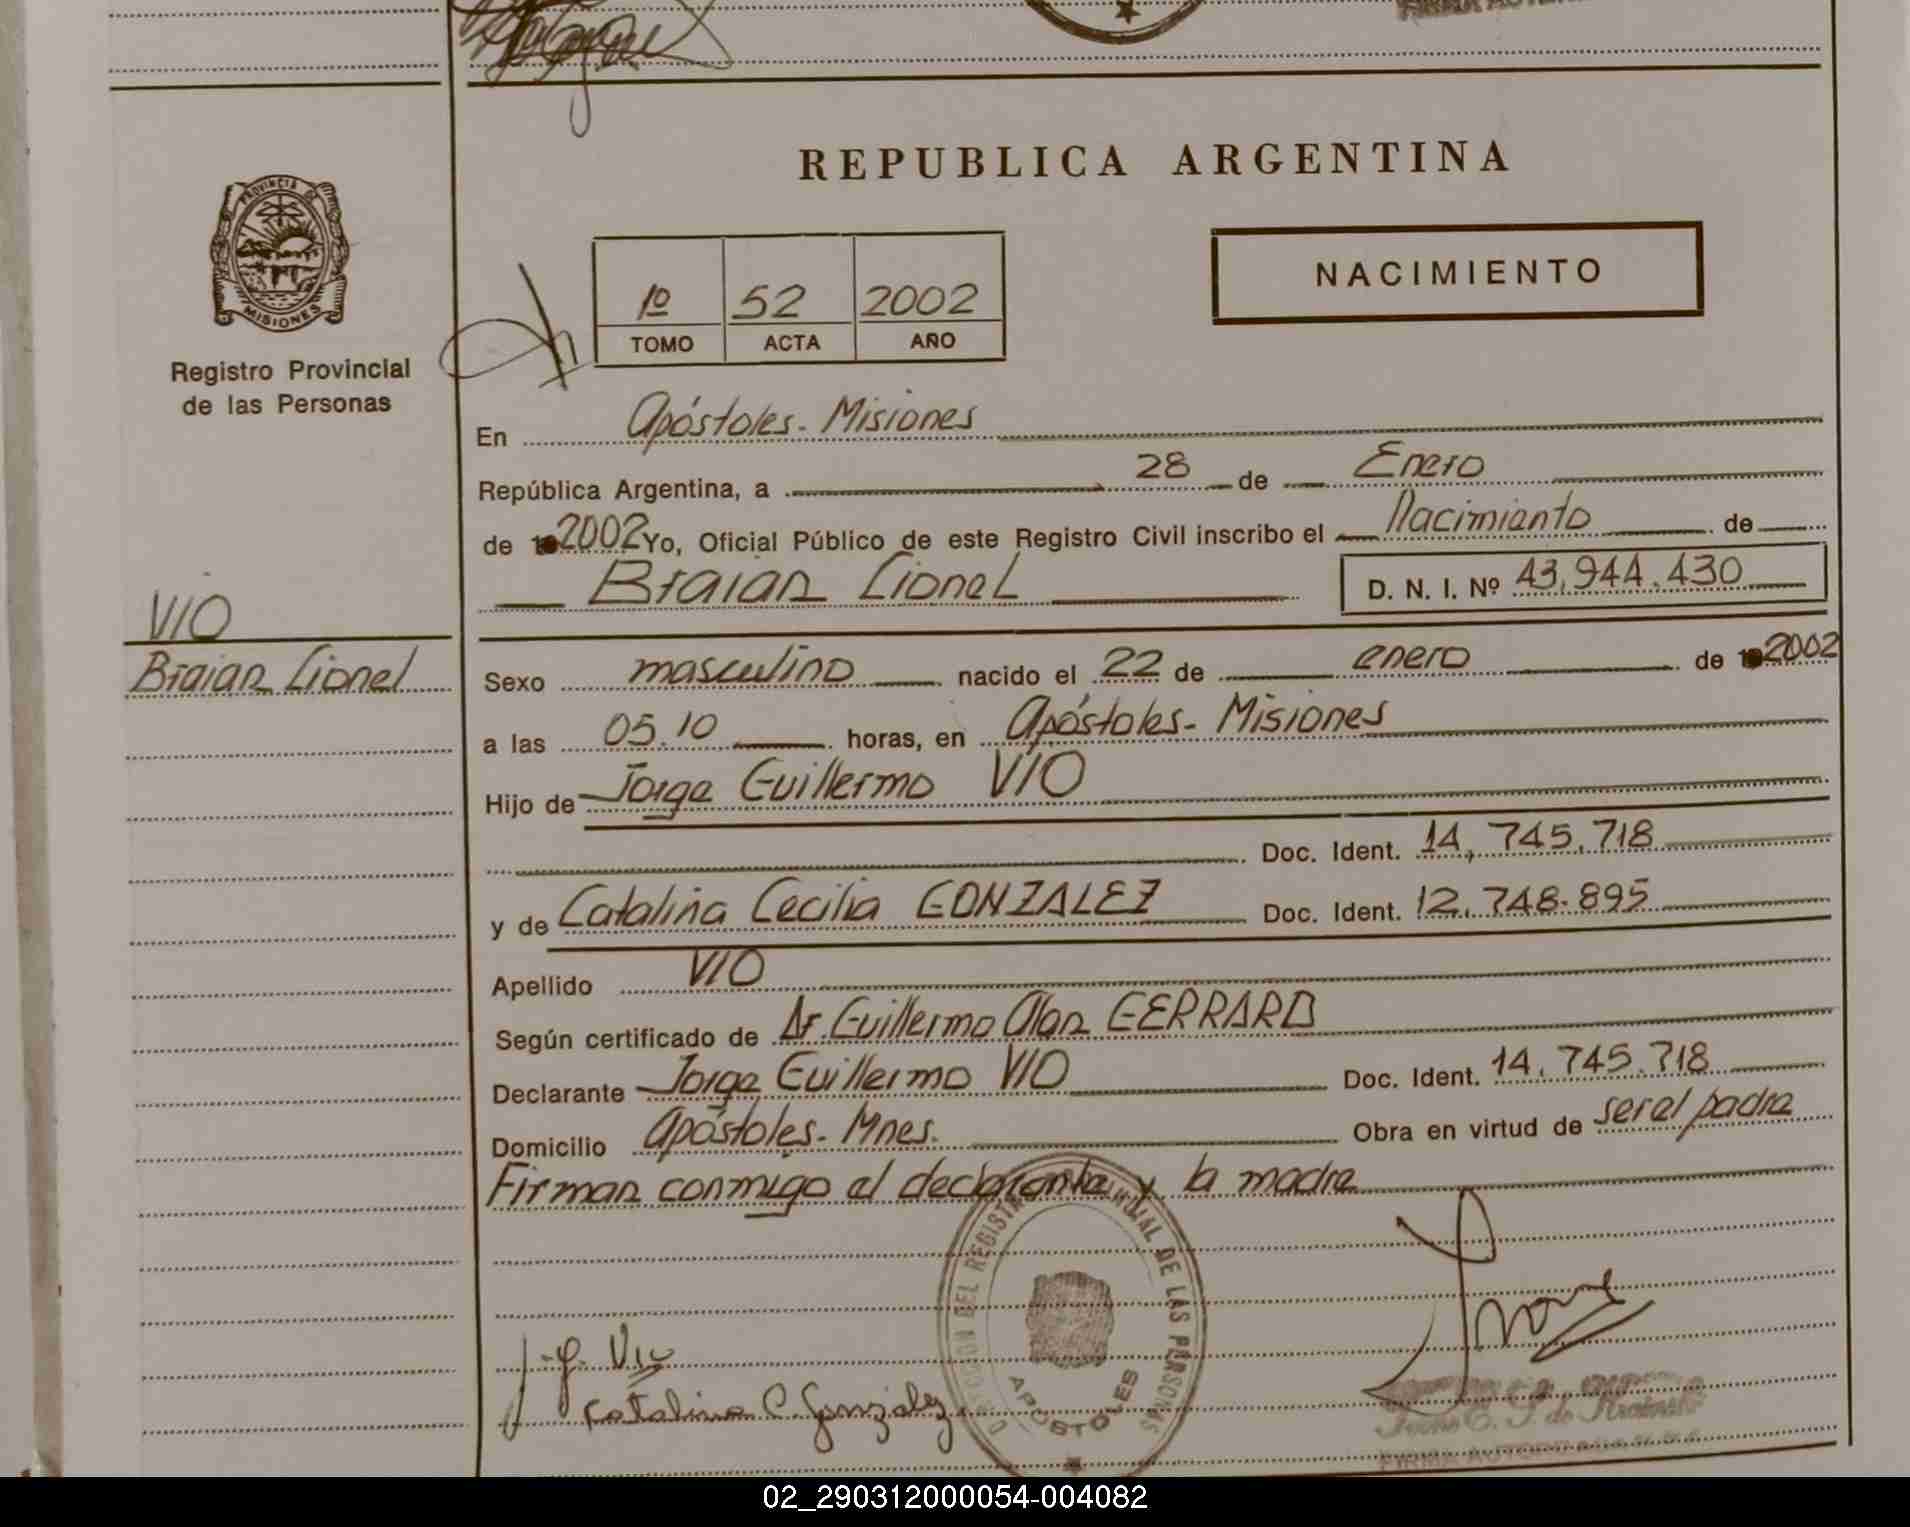 REPUBLICA ARGENTINA
PROVINCIA DE
MISIONES
Registro Provincial
de las Personas
1º 52 2002
TOMO ACTA AÑO
NACIMIENTO
En Apóstoles - Misiones
República Argentina, a 28 de Enero
de 2002 Yo, Oficial Público de este Registro Civil inscribo el Nacimiento de
Braian Lionel D. N. I. Nº 43,944.430
VIO
Braian Lionel
Sexo masculino nacido el 22 de enero de 2002
a las 05.10 horas, en Apóstoles - Misiones
Hijo de Jorge Guillermo VIO
Doc. Ident. 14, 745.718
y de Catalina Cecilia GONZALEZ Doc. Ident. 12.748.895
Apellido VIO
Según certificado de Dr. Guillermo Alan GERRARD
Declarante Jorge Guillermo VIO Doc. Ident. 14.745.718
Domicilio Apóstoles - Mnes. Obra en virtud de ser el padre
Firman conmigo el declarante y la madre
DEL REGISTRO PROVINCIAL DE LAS PERSONAS
APOSTOLES
J. G. Vio
Catalina C. Gonzalez
02_290312000054-004082